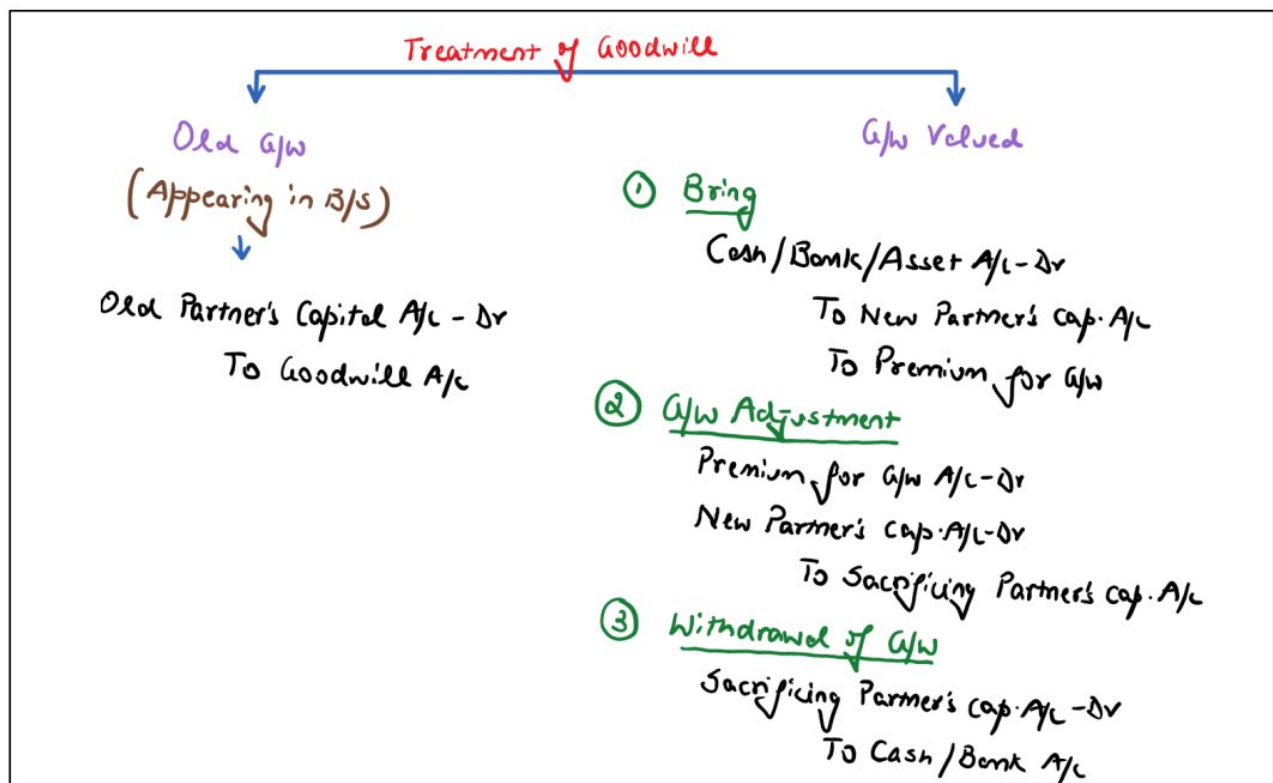 Treatment of Goodwill
Old G/w
(Appearing in B/S)
Old Partner's Capital A/c - Dr
To Goodwill A/c
G/w Valued
① Bring
Cash/Bank/Asset A/c-Dr
To New Partner's Cap. A/c
To Premium for G/w
② G/w Adjustment
Premium for G/w A/c-Dr
New Partner's Cap. A/c-Dr
To Sacrificing Partner's Cap. A/c
③ Withdrawal of G/w
Sacrificing Partner's Cap. A/c -Dr
To Cash/Bank A/c